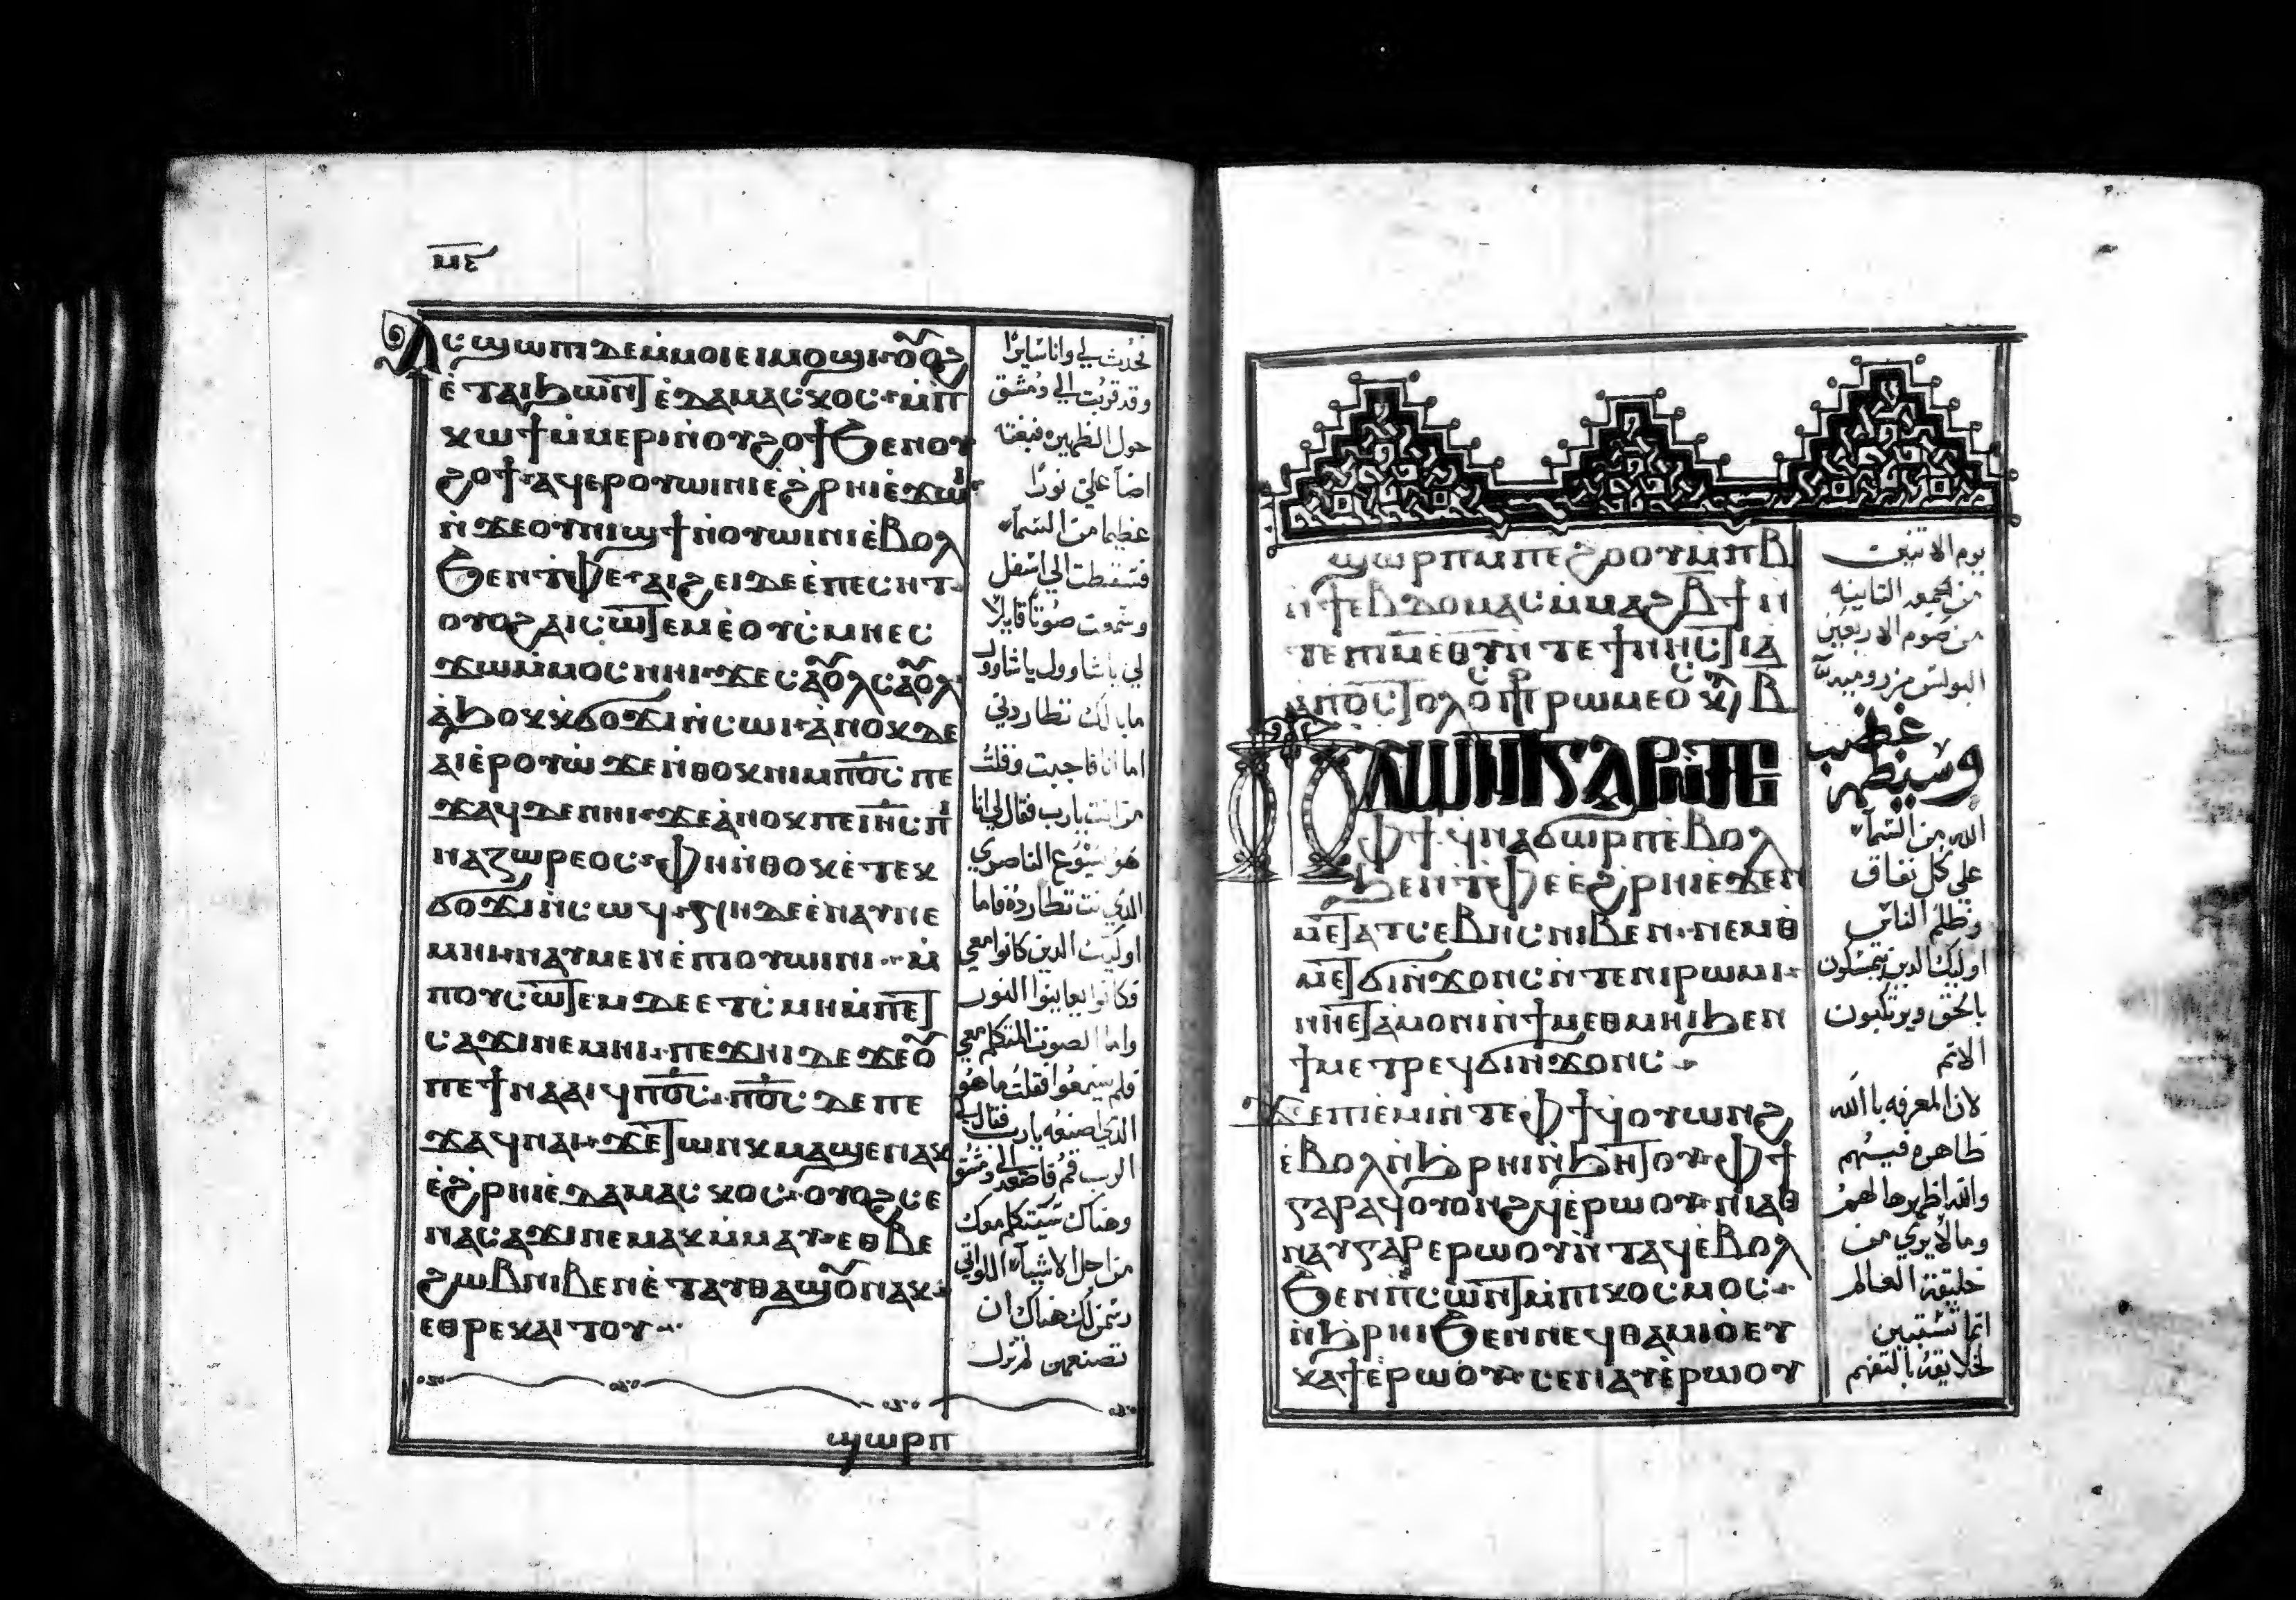 ⲙⲉ
ⲁⲥϣⲱⲡⲓ ⲇⲉ ⲙ̀ⲙⲟⲓ ⲉⲓⲙⲟϣⲓ ⲟⲩⲟϩ
ⲉ̀ⲧⲁⲓϧⲱⲛⲧ ⲉ̀ⲇⲁⲙⲁⲥⲕⲟⲥ ⲙ̀ⲡ
ⲕⲱϯ ⲙ̀ⲙⲉⲣⲓ ⲛ̀ⲟⲩϩⲟϯ ϧⲉⲛ ⲟⲩ
ϩⲟϯ ⲁϥⲉⲣⲟⲩⲱⲓⲛⲓ ⲉ̀ϩⲣⲏⲓ ⲉ̀ϫⲱⲓ
ⲛ̀ϫⲉ ⲟⲩⲛⲓϣϯ ⲛ̀ⲟⲩⲱⲓⲛⲓ ⲉ̀ⲃⲟⲗ
ϧⲉⲛ ⲧ̀ⲫⲉ ⲁⲓϩⲉⲓ ⲇⲉ ⲉ̀ⲡⲉⲥⲏⲧ
ⲟⲩⲟϩ ⲁⲓⲥⲱⲧⲉⲙ ⲉ̀ⲟⲩⲥ̀ⲙⲏ ⲉⲥ
ϫⲱ ⲙ̀ⲙⲟⲥ ⲛⲏⲓ ϫⲉ ⲥⲁⲟⲩⲗ ⲥⲁⲟⲩⲗ
ⲁ̀ϧⲟⲕ ⲕ̀ϭⲟϫⲓ ⲛ̀ⲥⲱⲓ ⲁ̀ⲛⲟⲕ ⲇⲉ
ⲁⲓⲉ̀ⲣⲟⲩⲱ̀ ϫⲉ ⲛ̀ⲑⲟⲕ ⲛⲓⲙ ⲡ̅ⲟ̅ⲥ̅ ⲡⲉ
ϫⲁϥ ⲇⲉ ⲛⲏⲓ ϫⲉ ⲁ̀ⲛⲟⲕ ⲡⲉ ⲓ̅ⲏ̅ⲥ̅ ⲡⲓ
ⲛⲁⲍⲱⲣⲉⲟⲥ ⲫⲏ ⲛ̀ⲑⲟⲕ ⲉ̀ⲧⲉⲕ
ϭⲟϫⲓ ⲛ̀ⲥⲱϥ ⲛⲏ ⲇⲉ ⲉ̀ⲛⲁⲩⲛⲉ
ⲙⲏⲓ ⲛⲁⲩ ⲙⲉⲛ ⲉ̀ⲡⲓⲟⲩⲱⲓⲛⲓ ⲙ̀
ⲡⲟⲩⲥⲱⲧⲉⲙ ⲇⲉ ⲉ̀ⲧⲥ̀ⲙⲏ ⲙ̀ⲡⲉⲧ
ⲥⲁϫⲓ ⲛⲉⲙⲏⲓ ⲡⲉϫⲏⲓ ⲇⲉ ϫⲉ ⲟⲩ
ⲡⲉϯⲛⲁⲁⲓϥ ⲡ̅ⲟ̅ⲥ̅ ⲡ̅ⲟ̅ⲥ̅ ⲇⲉ ⲡⲉ
ϫⲁϥ ⲛⲁⲓ ϫⲉ ⲧⲱⲛⲕ ⲙⲁϣⲉⲛⲁⲕ
ⲉ̀ϩⲣⲏⲓ ⲉ̀ⲇⲁⲙⲁⲥⲕⲟⲥ ⲟⲩⲟϩ ⲥⲉ
ⲛⲁⲥⲁϫⲓ ⲛⲉⲙⲁⲕ ⲙ̀ⲙⲁⲩ ⲉⲑⲃⲉ
ϩⲱⲃ ⲛⲓⲃⲉⲛ ⲉ̀ⲧⲁⲩⲑⲁϣⲟⲩ ⲛⲁⲕ
ⲉⲑⲣⲉⲕⲁⲓⲧⲟⲩ
فحدث لي وانا سايرًا
وقد قربت الي دمشق
حول الظهيره فبغته
اضآ علي نورًا
عظيما من السمآء
فسقطت الي اسفل
وسمعت صوتا قايلًا
لي يا شاوول يا شاوول
ما بالك تطاردني
اما انا فاجبت وقلت
من انت يارب فقال لي انا
هو يسوع الناصري
الذي انت تطارده فاما
اوليك الذين كانوا معي
فكانوا يعاينوا النور
واما الصوت المتكلم معي
فلم يسمعوا فقلت ما هو
الذي اصنعه يارب فقال لي
الرب قم فاصعد الي دمشق
وهناك سيتكلم معك
من اجل الاشيآء اللواتي
رسمن لك هناك ان
تصنعهن لم تزل
ϣⲱⲣⲡ
ϣⲱⲣⲡ ⲙ̀ⲡⲉϩⲟⲟⲩ ⲙ̀ⲡⲃ
ⲛ̀ϯⲉⲃⲇⲟⲙⲁⲥ ⲙ̀ⲙⲁϩⲃ̅ϯ ⲛ̀
ⲧⲉ ⲡⲓⲙ̅ ⲉⲑⲩ ⲛ̀ⲧⲉ ϯⲛⲏⲥⲧⲓⲁ
ⲁⲡⲟⲥⲧⲟⲗⲟⲛ ⲡⲣⲱⲙⲉⲟⲥ ⲕⲉ ⲃ
ϥⲟⲩⲱⲛϩ ⲅⲁⲣ ⲛ̀ϫⲉ
ⲫϯ ϥ̀ⲛⲁϭⲱⲣⲡ ⲉ̀ⲃⲟⲗ
ϧⲉⲛ ⲧ̀ⲫⲉ ⲉ̀ϩⲣⲏⲓ ⲉ̀ϫⲉⲛ
ⲙⲉⲧⲁⲧⲥⲉⲃⲏⲥ ⲛⲓⲃⲉⲛ ⲛⲉⲙ ⲑ
ⲙⲉⲧϭⲓⲛ̀ϫⲟⲛⲥ ⲛ̀ⲧⲉ ⲛⲓⲣⲱⲙⲓ
ⲛⲏⲉⲧⲁⲙⲟⲛⲓ ⲛ̀ϯⲙⲉⲑⲙⲏⲓ ϧⲉⲛ
ϯⲙⲉⲧⲣⲉϥϭⲓⲛ̀ϫⲟⲛⲥ
ϫⲉ ⲡⲓⲉ̀ⲙⲓ ⲛ̀ⲧⲉ ⲫϯ ϥ̀ⲟⲩⲱⲛϩ
ⲉ̀ⲃⲟⲗ ⲛ̀ϧⲣⲏⲓ ⲛ̀ϧⲏⲧⲟⲩ ⲫϯ
ⲅⲁⲣ ⲁϥⲟⲩⲟⲛϩϥ ⲉ̀ⲣⲱⲟⲩ ⲛⲓⲁⲑ
ⲛⲁⲩ ⲅⲁⲣ ⲉⲣⲱⲟⲩ ⲛ̀ⲧⲁϥ ⲉ̀ⲃⲟⲗ
ϧⲉⲛ ⲡ̀ⲥⲱⲛⲧ ⲙ̀ⲡⲓⲕⲟⲥⲙⲟⲥ
ⲛ̀ϧⲣⲏⲓ ϧⲉⲛ ⲛⲉϥⲑⲁⲙⲓⲟ̀ ⲉⲩ
ⲕⲁϯ ⲉ̀ⲣⲱⲟⲩ ⲥⲉⲛⲁⲩ ⲉ̀ⲣⲱⲟⲩ
يوم الاتنين
من الجمعه التانيه
من صوم الاربعين
البولس من روميه
وسيظهر غضب
الله من السمآء
علي كل نفاق
وظلم الناس
اوليك الذين يتمسكون
بالحق ويرتكبون
الاتم
لان المعرفه بالله
ظاهره فيهم
والله اظهرها لهم
وما لا يري من
خليقة العالم
انما تستبين
لخلايقه بالتفهم